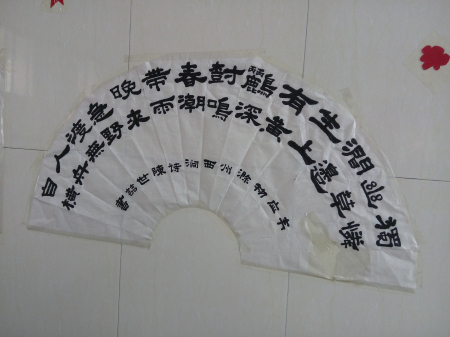 獨憐
幽草
澗邊
生上
有黃
鸝深
樹鳴
春潮
帶雨
晚來
急野
渡無
人舟
自橫
韦应物滁州西涧诗陳世喆書